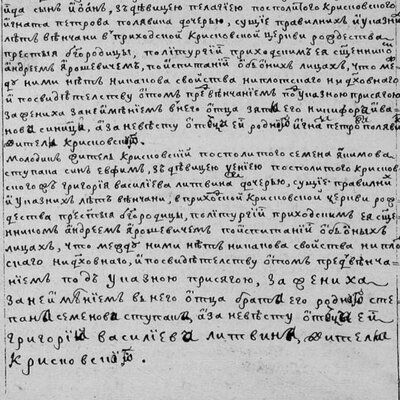 сынъ Іоанъ, здѣвицею Пелагіею посполитого Крисковского
Игната Петрова Полявина дочерью, сущіе правилнихъ и указнихъ
лѣтъ вѣнчани вприходской Крисковской церкви рождества
престыя богородицы, політургіи приходскимъ ея сщенникомъ
Андреем Ярошевичемъ, поиспитаніи обѣихъ лицахъ, что между
ними нѣтъ никакова свойства ниплотскаго нидуховнаго
и посвидетелству отомъ предъвѣнчаніемъ по указною присягою
заЖениха занеимѣніемъ внего отца его Никифора Ива
нова Синици, а за невѣсту отца ей родного Игната Петрова Поляви
жителы Крисковскіе.
Молодикъ житель Крисковскій посполитого Семена Якимова
Ступака синъ Евфимъ, здѣвицею посполитого Крисков
ского Григорія Василіева Литвина дочерью, сущіе правилни
и указнихъ лѣтъ вѣнчани, вприходской Крисковской церкви рож
дества престыя богородицы, політургіи приходскимъ ея сще
нникомъ Андреемъ Ярошевичемъ поиспитаніи обѣихъ
лицахъ, что между ними нѣтъ никакова свойства нипло
скаго нидховнаго, и посвидетелству отомъ предвѣнча
ніемъ подъ указною присягою, за Жениха
занеимѣніемъ внего отца братъ его родной Сте
панъ Семеновъ Ступакъ, а за невѣсту отецъ ей
Григорій Василіевъ Литвинъ, жителы
Крисковскіе.